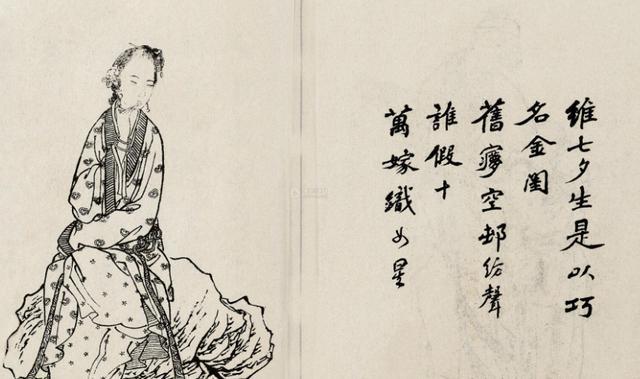 維七夕生是以巧
名金閨
舊空邨聲
誰假十
萬嫁織女星